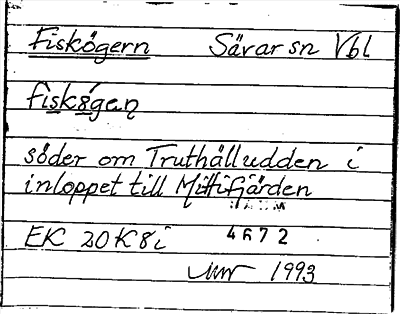 Fiskögern Sävar sn Vbl
fiskögaṇ
söder om Truthälludden i
inloppet till Mittifjärden
EK 20K8i 4672
1993